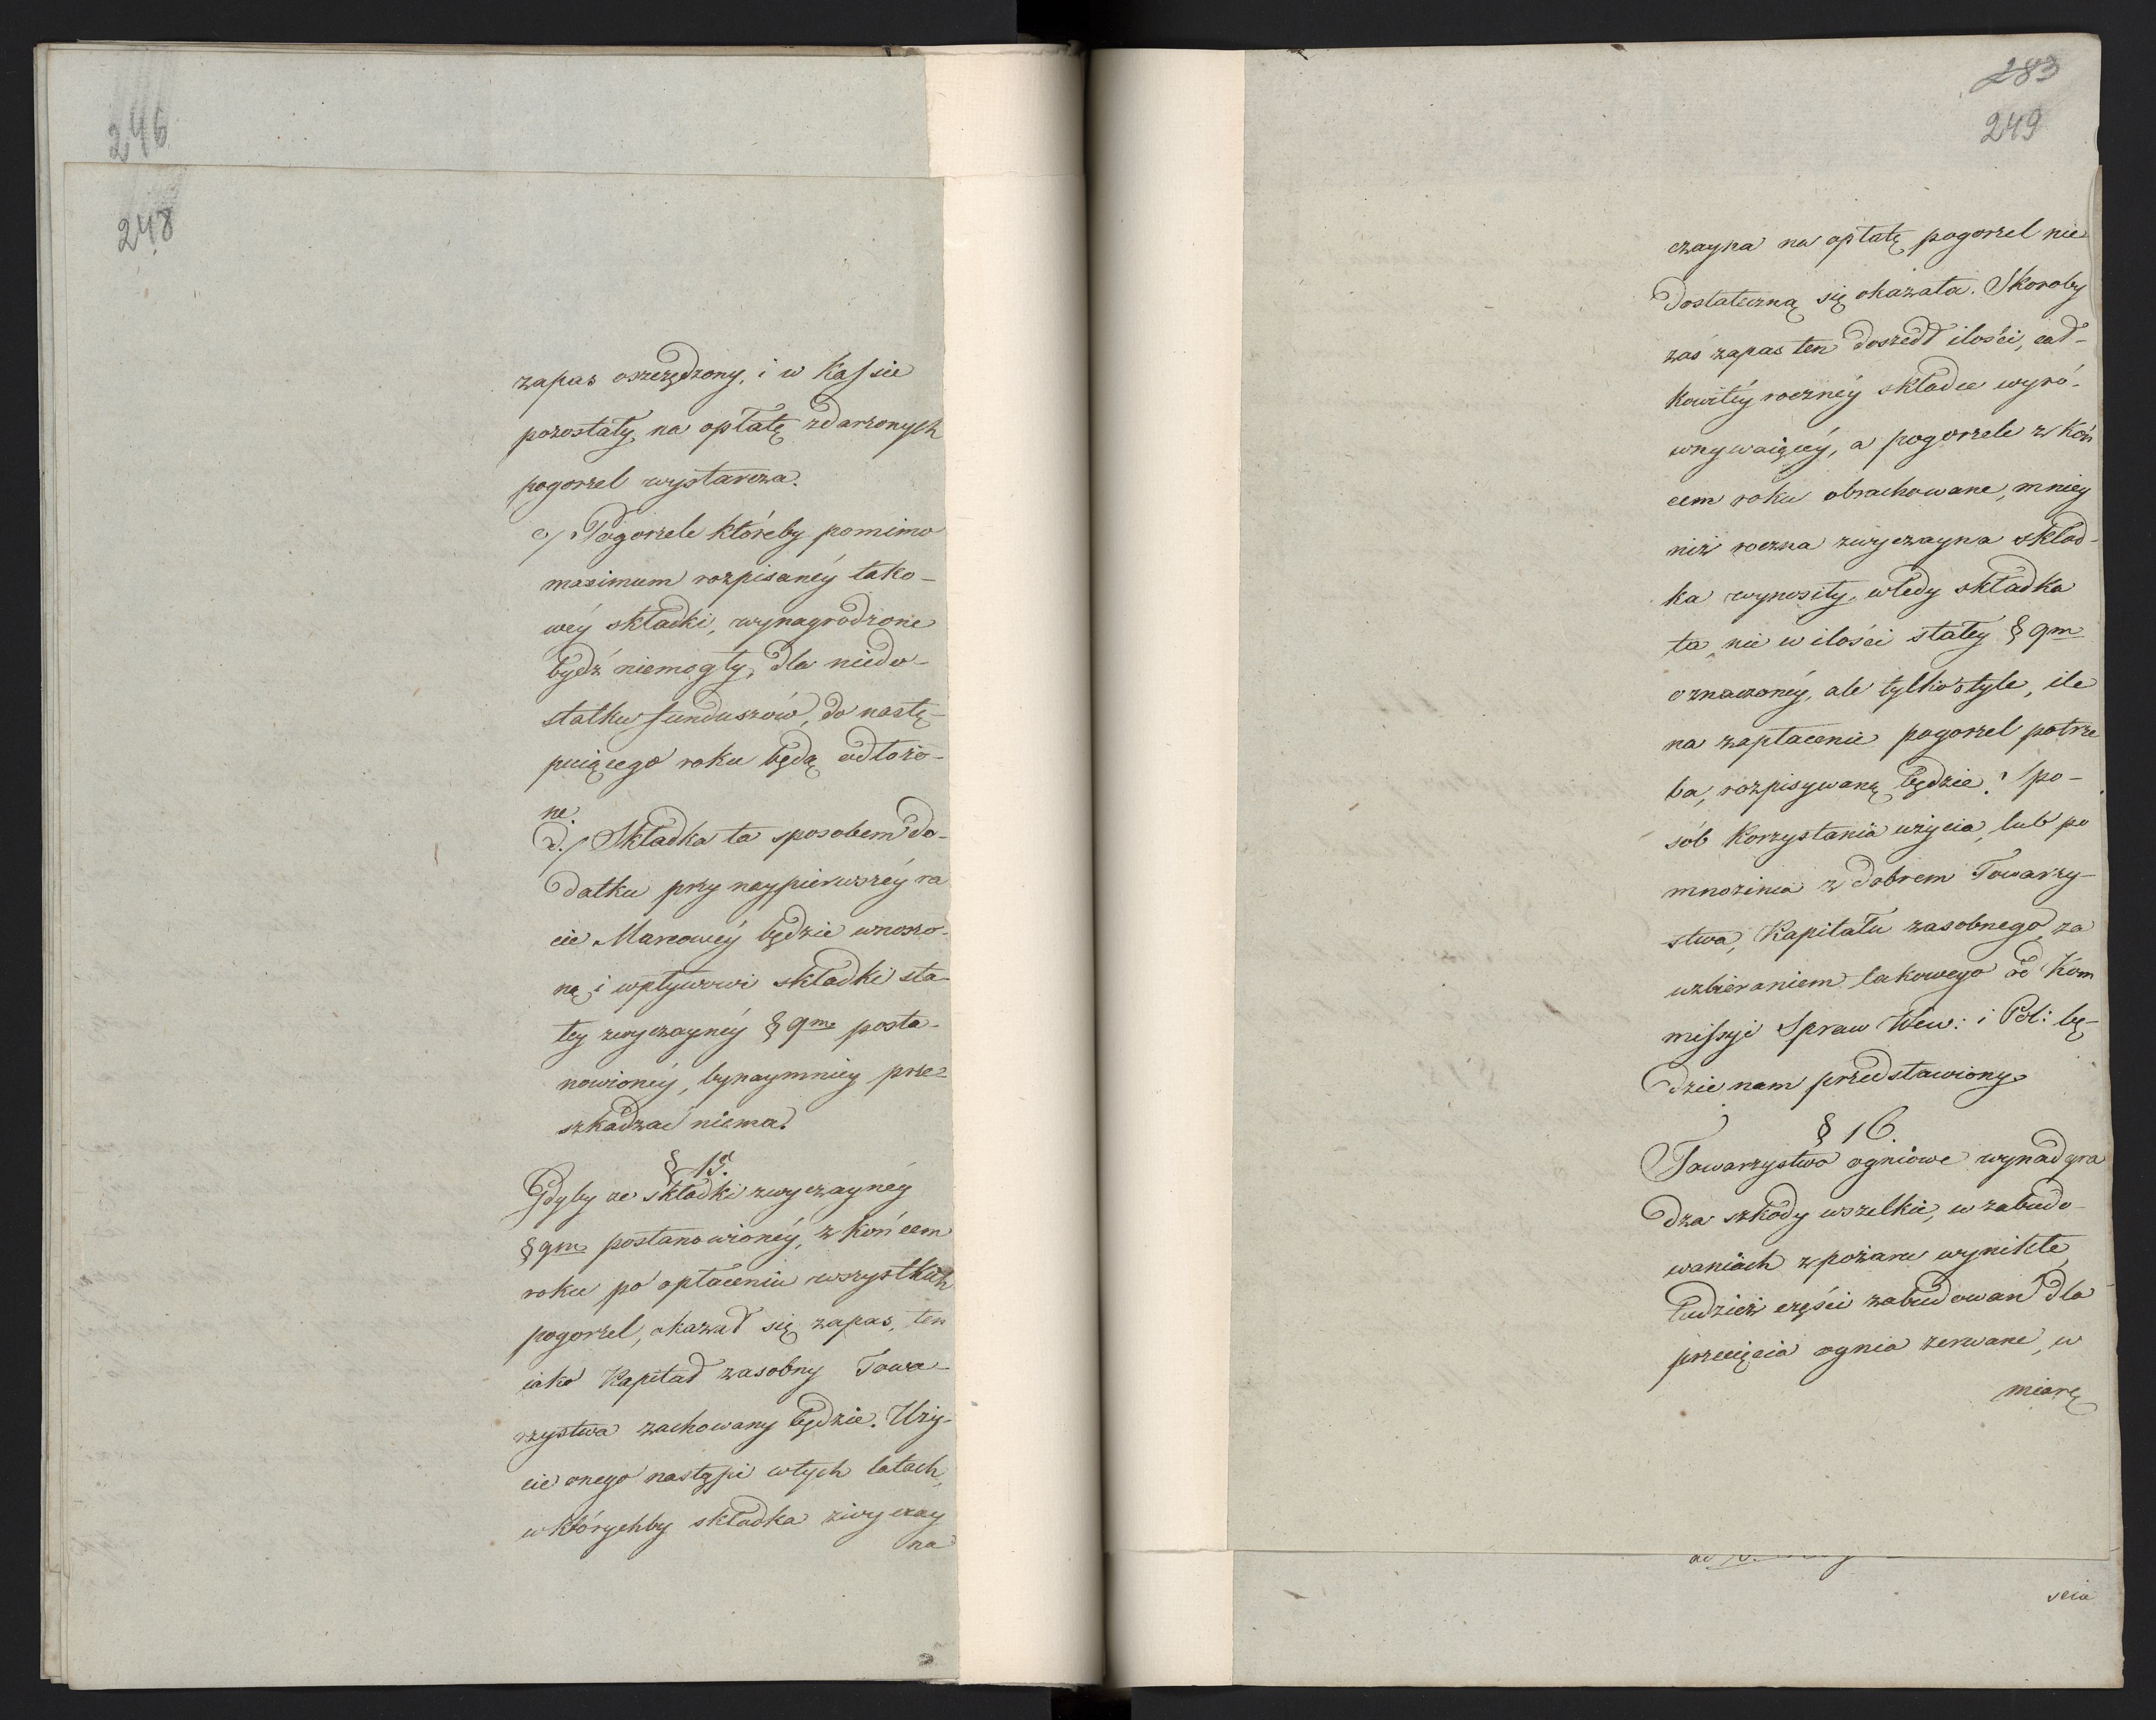 246
248
zapas oszczędzony, i w Kassie
pozostały na opłatę zdarzonych
pogorzel wystarcza.
c/ Pogorzele któreby pomimo
maximum rozpisanéy tako-
wéy składki, wynagrodzone
bydź niemogły, dla niedo-
statku funduszów, do nastę-
puiącego roku będą odłożo-
ne.
d./ Składka ta sposobem do-
datku przy naypierwszéy ra
cie Marcowéy będzie wnoszo-
ną i wpływowi składki sta-
łey zwyczaynéy § 9m posta-
nowionéy, bynaymniey prze-
szkadzać niema.
§ 15.
Gdyby ze składki zwyczaynéy
§ 9m postanowionéy, z końcem
roku po opłaceniu wszystkich
pogorzel, okazał się zapas, ten
iako Kapitał zasobny Towa-
rzystwa zachowany będzie. Uży-
cie onego nastąpi w tych latach,
w którychby składka zwyczay
na
283
249
czayna na opłatę pogorzel nie
dostateczną się okazała. Skoroby
zaś zapas ten doszedł ilości, cał-
kowitéy rocznéy składce wyró-
wnywaiącéy, a pogorzele z koń
cem roku obrachowane, mniey
niż roczna zwyczayna skład-
ka wynosiły, wtedy składka
ta, nie w ilości stałéy § 9m
oznaczonéy, ale tylko tyle, ile
na zapłacenie pogorzel potrze
ba, rozpisywaną będzie. Spo-
sób korzystania użycia, lub po
mnożenia z dobrem Towarzy-
stwa, Kapitału zasobnego, za
uzbieraniem takowego od Kom
missyi Spraw Wew: i Pol: bę-
dzie nam przedstawiony.
§ 16.
Towarzystwo ogniowe wynadgra
dza szkody wszelkie, w zabudo-
waniach z pożaru wynikłe,
tudzież części zabudowań dla
przecięcia ognia zerwane, w
miarę
scia